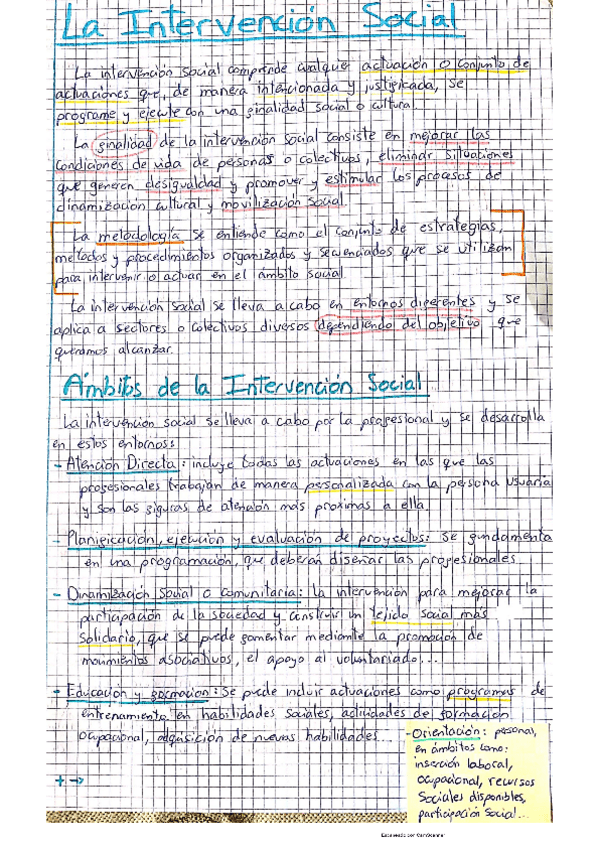 La Intervención Social
La intervención social comprende cualquier actuación o conjunto de
actuaciones que, de manera intencionada y justificada, se
programe y ejecute con una finalidad social o cultura
La finalidad de la intervención social consiste en mejorar las
condiciones de vida de personas o colectivos, eliminar situaciones
que generen desigualdad y promover y estimular los procesos de
dinamización cultural y movilización social.
La metodología se entiende como el conjunto de estrategias,
métodos y procedimientos organizados y secuenciados que se utilizan
para intervenir o actuar en el ámbito social.
La intervención social se lleva a cabo en entornos diferentes y se
aplica a sectores o colectivos diversos dependiendo del objetivo que
queramos alcanzar.
Ámbitos de la Intervención Social
La intervención social se lleva a cabo por la profesional y se desarrolla
en estos entornos:
- Atención Directa: incluye todas las actuaciones en las que las
profesionales trabajan de manera personalizada con la persona usuaria
y son las figuras de atención más próximas a ella
- Planificación, ejecución y evaluación de proyectos: Se fundamenta
en una programación, que deberán diseñar las profesionales
- Dinamización Social o comunitaria: la intervención para mejorar la
participación de la sociedad y construir un tejido social más
solidario, que se puede fomentar mediante la promoción de
movimientos asociativos, el apoyo al voluntariado...
- Educación y formación: Se puede incluir actuaciones como programas de
entrenamiento en habilidades sociales, actividades de formación
ocupacional, adquisición de nuevas habilidades...
- Orientación: personal,
en ámbitos como:
inserción laboral,
ocupacional, recursos
sociales disponibles,
participación social...
+ →
Escaneado con CamScanner